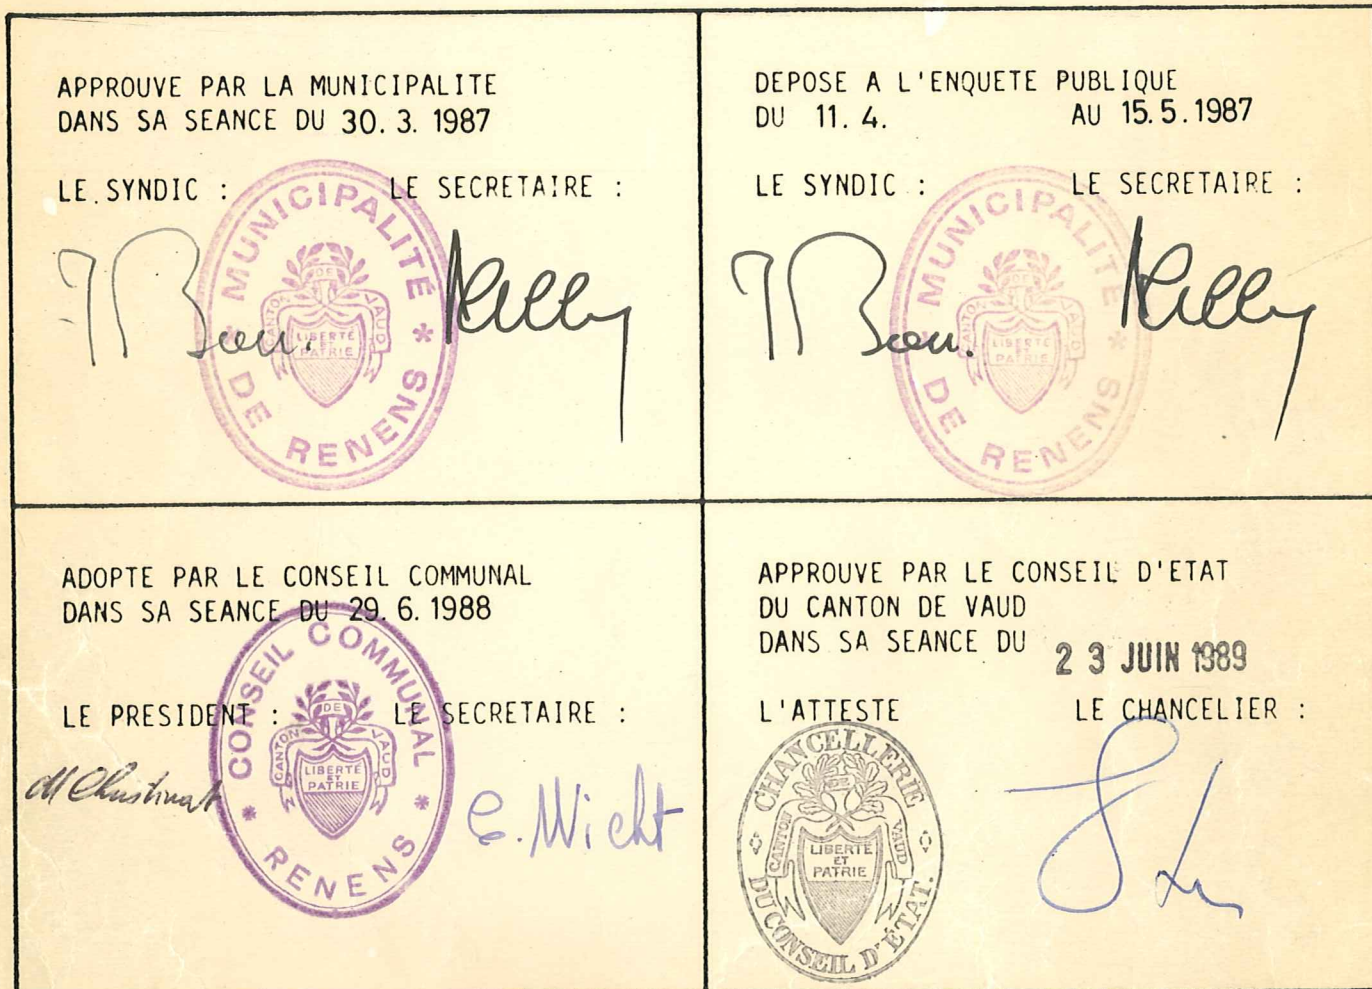 APPROUVE PAR LA MUNICIPALITE
DANS SA SEANCE DU 30. 3. 1987
LE SYNDIC : LE SECRETAIRE :
MUNICIPALITÉ
DE RENENS
CANTON DE VAUD
LIBERTÉ
ET
PATRIE
DEPOSE A L'ENQUETE PUBLIQUE
DU 11. 4. AU 15.5.1987
LE SYNDIC : LE SECRETAIRE :
MUNICIPALITÉ
DE RENENS
CANTON DE VAUD
LIBERTÉ
ET
PATRIE
ADOPTE PAR LE CONSEIL COMMUNAL
DANS SA SEANCE DU 29. 6. 1988
LE PRESIDENT : LE SECRETAIRE :
CONSEIL COMMUNAL
RENENS
CANTON DE VAUD
LIBERTÉ
ET
PATRIE
M Christinat
C. Wicht
APPROUVE PAR LE CONSEIL D'ETAT
DU CANTON DE VAUD
DANS SA SEANCE DU 23 JUIN 1989
L'ATTESTE LE CHANCELIER :
CHANCELLERIE
DU CONSEIL D'ÉTAT.
CANTON DE VAUD
LIBERTÉ
ET
PATRIE